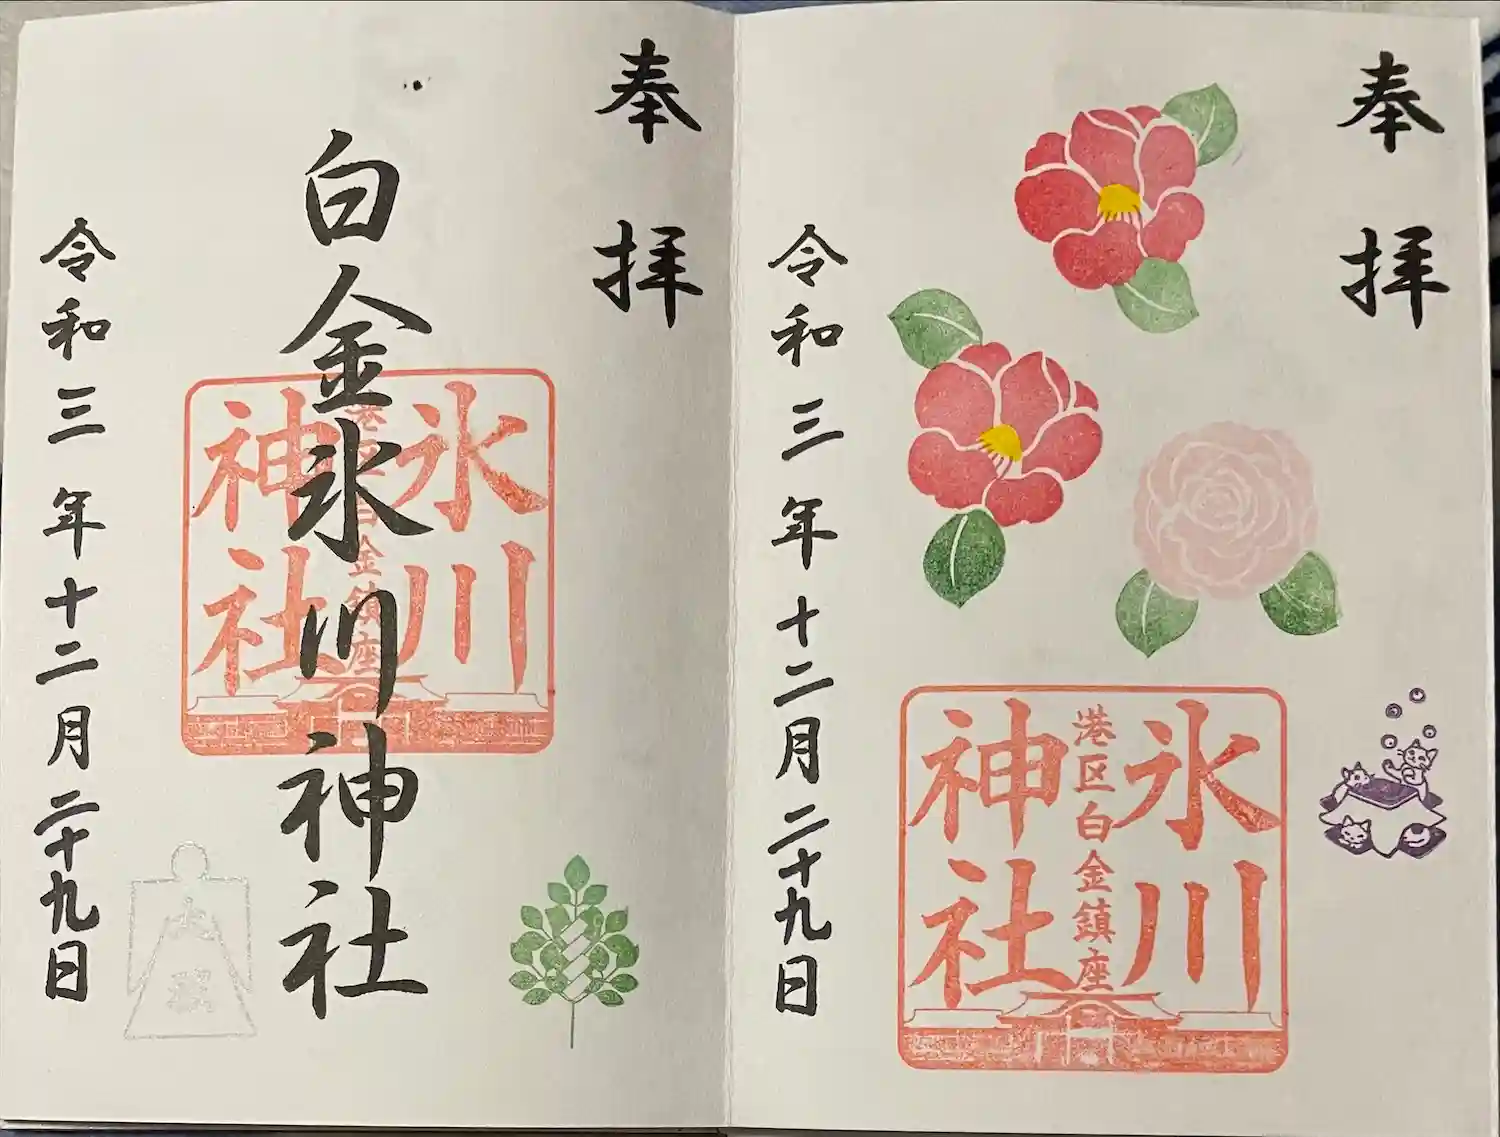 奉拝
氷川神社
港区白金鎮座
令和三年十二月二十九日
奉拝
白金氷川神社
氷川神社
港区白金鎮座
令和三年十二月二十九日
大祓